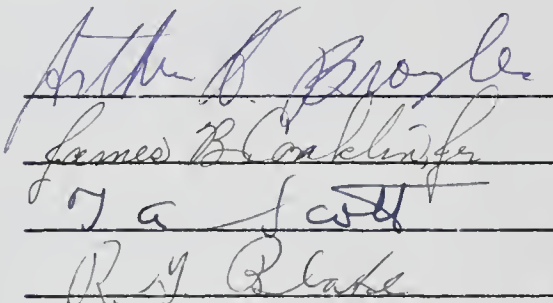 Arthur A Broyles
James B Conklin, Jr
T A Scott
R. G Blake